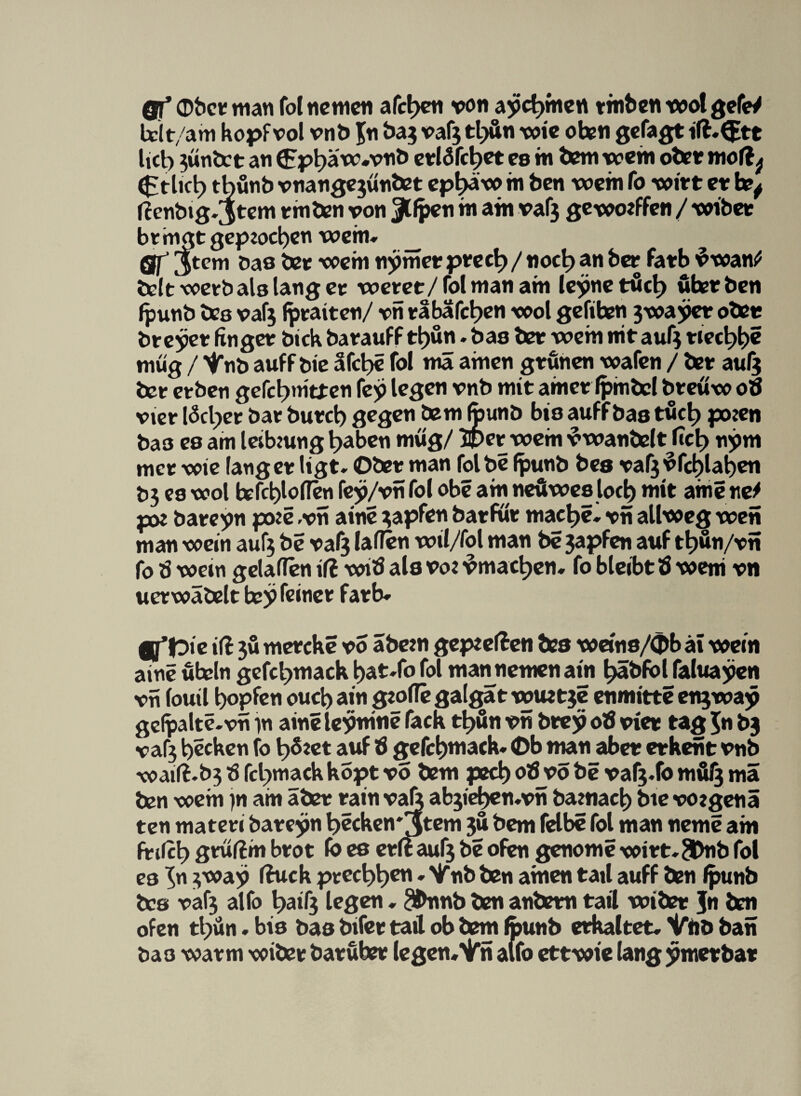 ¶ Ober man sol nemen aschen von aychinen rinden wol gese⸗
belt/ain kopf vol vnd Jn daz vaſʒ thůn wie oben gesagt ist. Ett
lich zündet an Ephäw.vnd erlöschet es in dem wein oder most.
Etlich thůnd vnangezündet ephäw in den wein so wirt er be⸗
stendig. Jtem rinden von Aspen in ain vaſʒ geworffen / wider
bringt geprochen wein.
¶ Jtem das der wein nymer prech / noch an der farb v̓wan⸗
delt werd als lang er weret / sol man ain leyne tůch über den
spund des vaſʒ spraiten/ vn̄ räbäschen wol gesiben zwayer oder
dreyer finger dick darauff thůn. das der wein nit auſʒ riechhē
müg / Vnd auff die äschē sol mā ainen grünen wasen / der auſʒ
der erden geschnitten sey legen vnd mit ainer spindel dreüw od̓
vier löcher dar durch gegen dem spund bis auff das tůch poren
das es ain leibrung haben müg/ Der wein v̓wandelt sich nym
mer wie lang er ligt. Oder man sol dē spund des vaſʒ v̓schlahen
dʒ es wol beschlossen sey/vn̄ sol obē ain neůwes loch mit ainē ne⸗
por dareyn porē .vn̄ ainē zapfen darfür machē. vn̄ allweg wen̄
man wein auſʒ dē vaſʒ lassen wil/sol man dē zapfen auf thůn/vn̄
so d̓ wein gelassen ist wid̓ als vor v̓machen. so bleibt d̓ wein vn
uerwādelt bey seiner farb.

¶ Die ist zů merckē vō ädern gepresten des weins/Ob āi wein
ainē übeln geschmack hat.so sol man nemen ain hādfol saluayen
vn̄ souil hopfen ouch ain grosse galgāt wurtzē enmittē entzway
gespaltē.vn̄ jn ainē leyninē sack thůn vn̄ drey od̓ vier tag Jn dʒ
vaſʒ hecken so höret auf d̓ geschmack. Ob man aber erkent vnd
waist.dʒ d̓ schmack kōpt vō dem pech od̓ vō dē vaſʒ.so můſʒ mā
den wein jn ain äder rain vaſʒ abziehen.vn̄ darnach die vorgenā
ten materi dareyn hecken. Jtem zů dem selbē sol man nemē ain
frisch grüstin brot so es erst auſʒ dē ofen genomē wirt. Vnd sol
es Jn zway stuck prechhen. Vnd den ainen tail auff den spund
des vaſʒ also haiſʒ legen. Vnnd den andern tail wider Jn den
ofen thůn. bis das diser tail ob dem spund erkaltet. Vnd dan̄
das warm wider darüber legen. Vn̄ also ettwie lang ymerdar